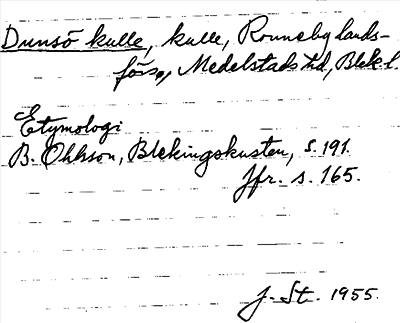 Dunsö kulle, kulle, Ronneby lands-
förs., Medelstads hd, Blek l.
Etymologi
B. Ohlsson, Blekingskusten, s. 191.
Jfr. s. 165.
J. St. 1955.